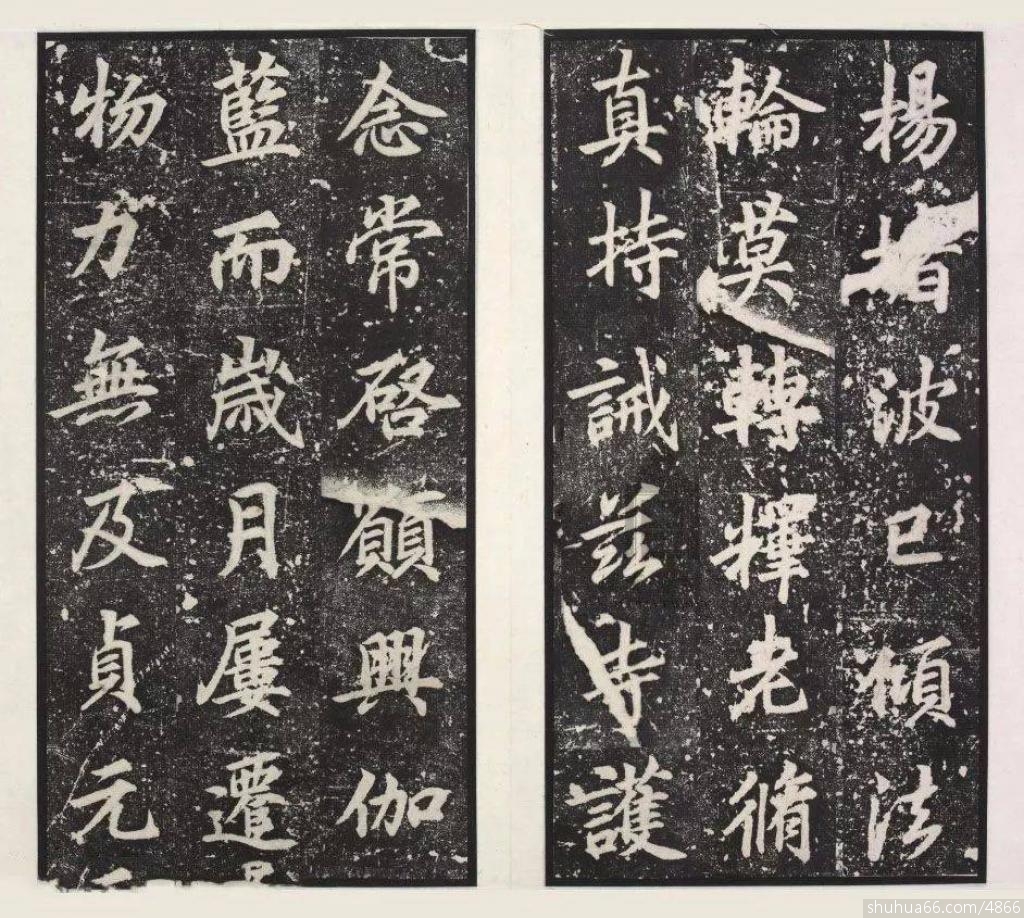 楊波已傾法
輪莫轉釋老脩
真持誡茲寺護
念常啓願興伽
藍而歲月屢遷
物力無及貞元
shuhua66.com/4866